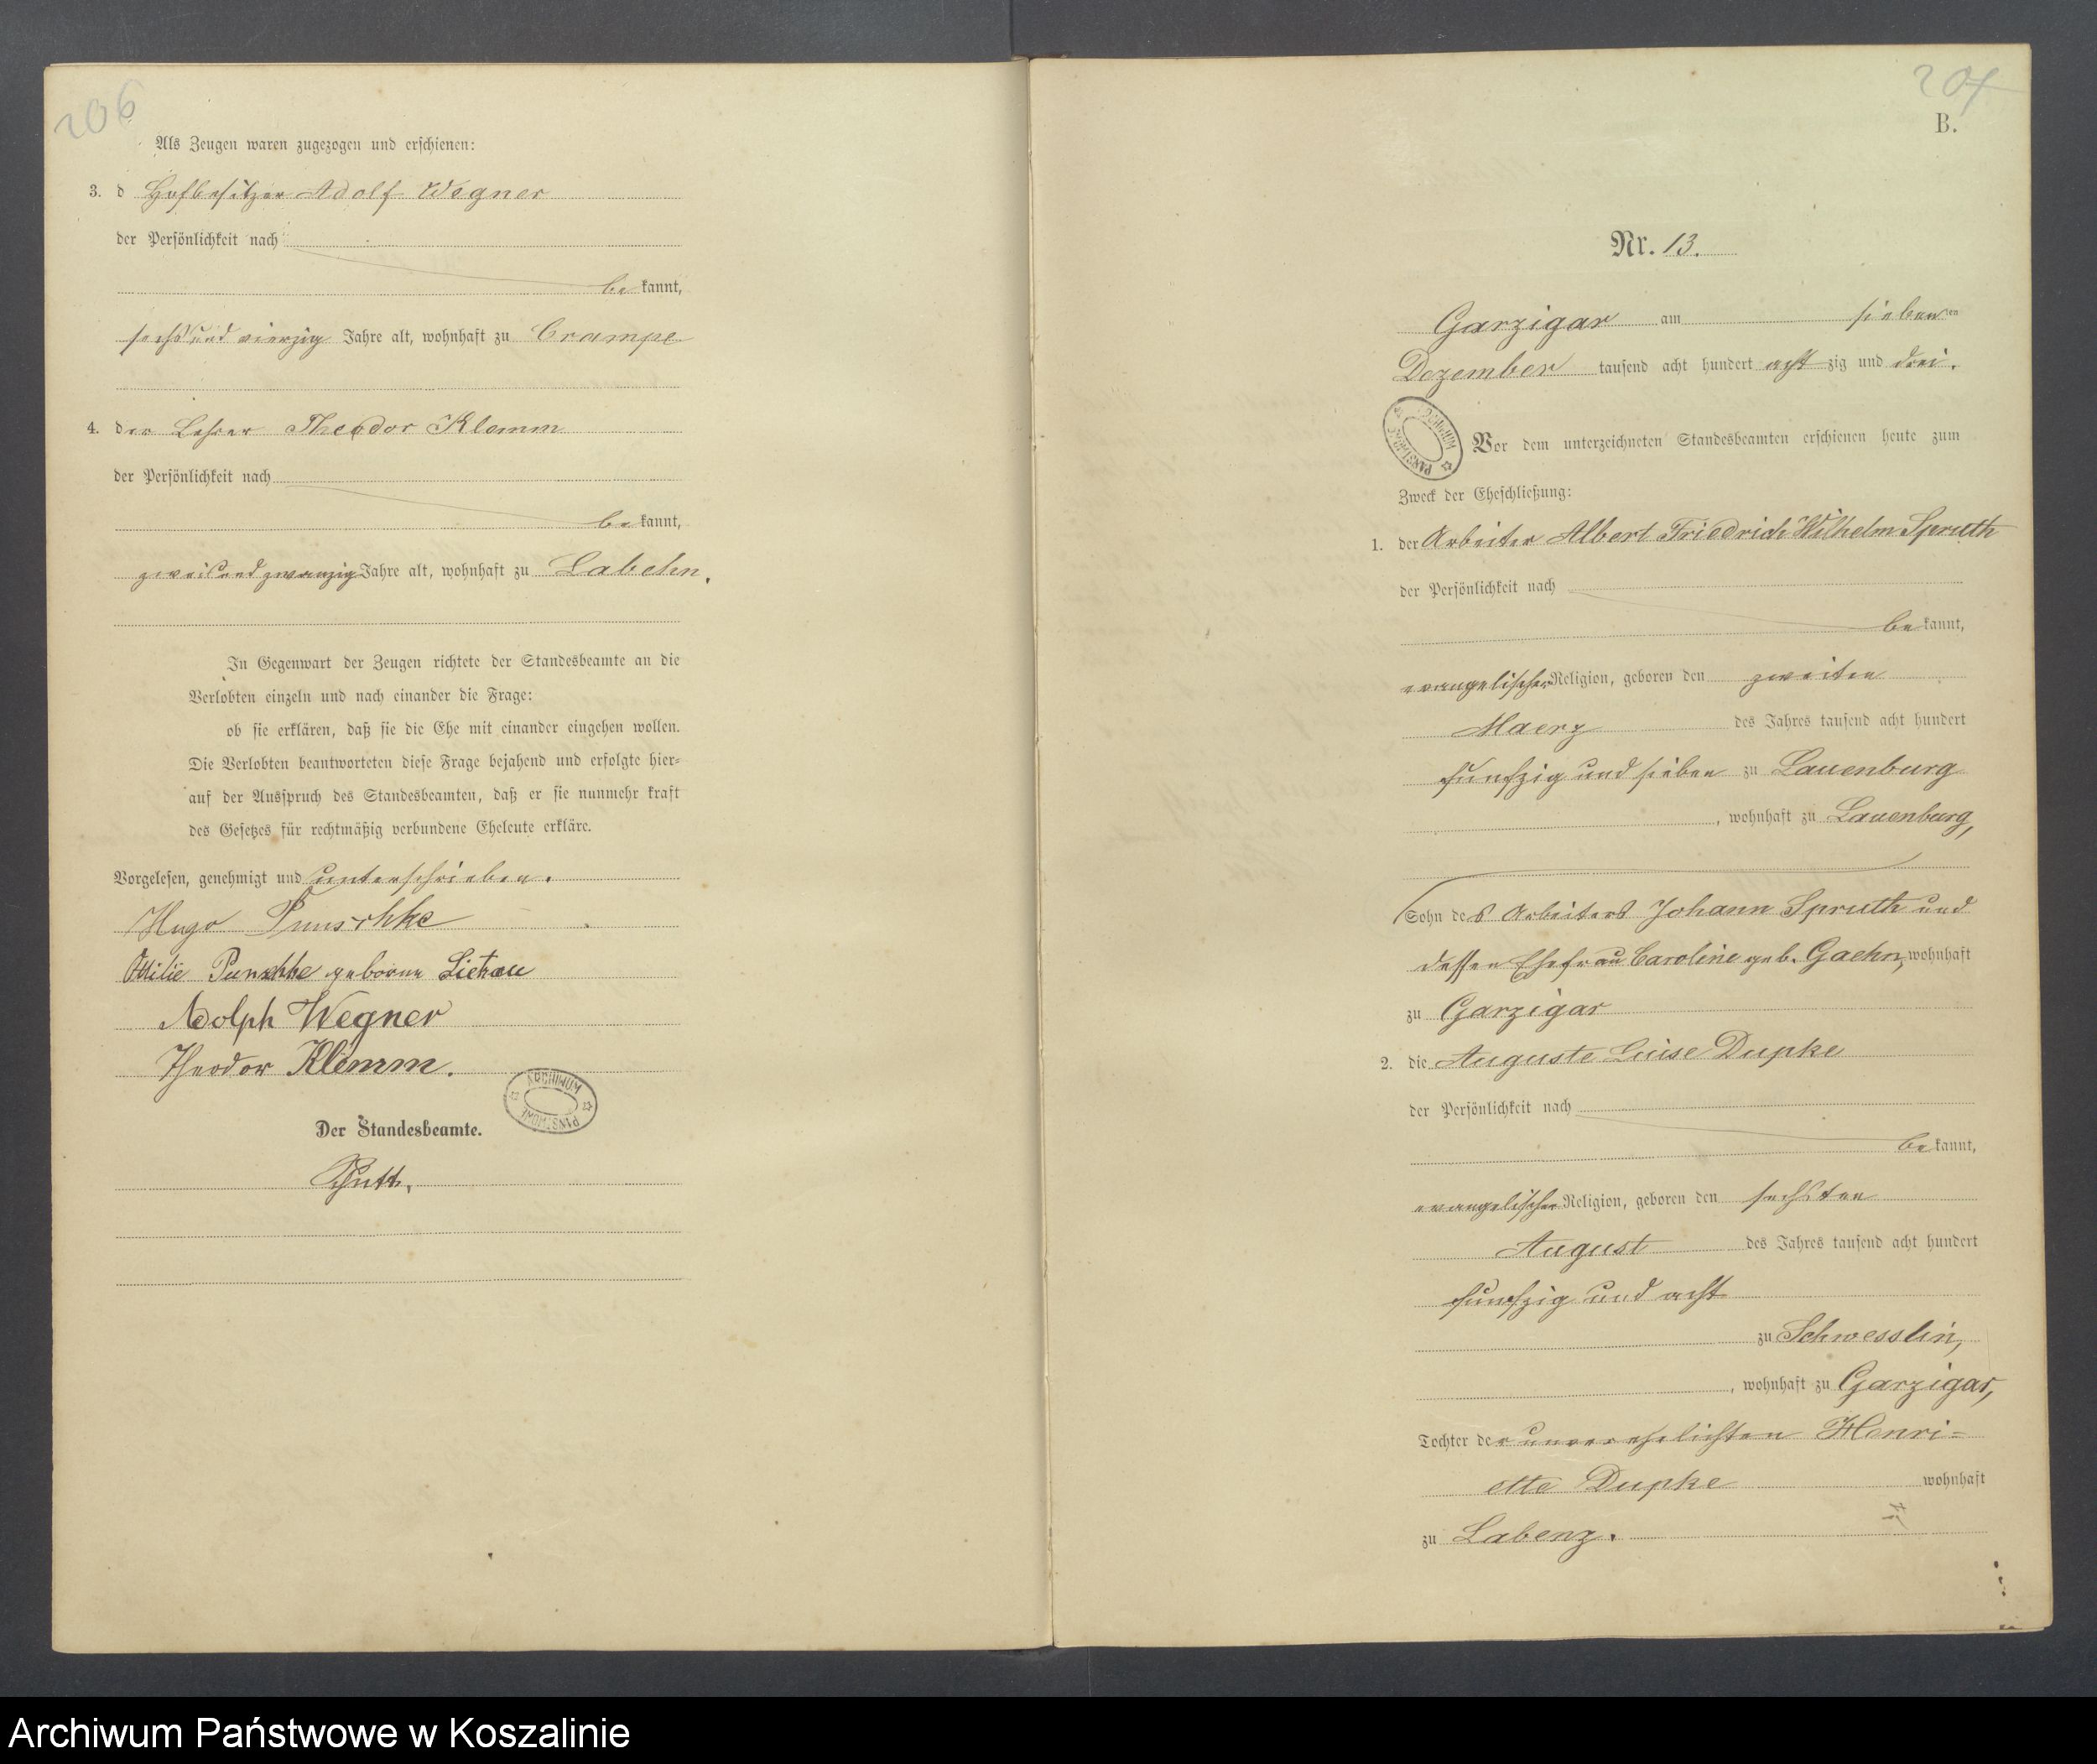 206
Als Zeugen waren zugezogen und erschienen:
3. d Hofbesitzer Adolf Wegner
der Persönlichkeit nach
be kannt,
sechsundvierzig Jahre alt, wohnhaft zu Crampe
4. der Lehrer Theodor Klemm
der Persönlichkeit nach
be kannt,
zweiundzwanzig Jahre alt, wohnhaft zu Labehn.
In Gegenwart der Zeugen richtete der Standesbeamte an die
Verlobten einzeln und nach einander die Frage:
ob sie erklären, daß sie die Ehe mit einander eingehen wollen.
Die Verlobten beantworteten diese Frage bejahend und erfolgte hier-
auf der Ausspruch des Standesbeamten, daß er sie nunmehr kraft
des Gesetzes für rechtmäßig verbundene Eheleute erkläre.
Vorgelesen, genehmigt und unterschrieben.
Hugo Punschke
Ottilie Punschke geborene Lietzau
Adolph Wegner
Theodor Klemm.
ARCHIWUM PAŃSTWOWE
Der Standesbeamte.
207
B.
Nr. 13.
Garzigar am sieben ten
Dezember tausend acht hundert acht zig und drei.
ARCHIWUM PAŃSTWOWE
Vor dem unterzeichneten Standesbeamten erschienen heute zum
Zweck der Eheschließung:
1. der Arbeiter Albert Friedrich Wilhelm Spruth
der Persönlichkeit nach
be kannt,
evangelischer Religion, geboren den zweiten
Maerz des Jahres tausend acht hundert
funfzig und sieben zu Lauenburg
, wohnhaft zu Lauenburg,
Sohn des Arbeiters Johann Spruth und
dessen Ehefrau Caroline geb. Gaehn, wohnhaft
zu Garzigar
2. die Auguste Luise Dupke
der Persönlichkeit nach
be kannt,
evangelischer Religion, geboren den sechsten
August des Jahres tausend acht hundert
funfzig und acht
zu Schwesslin,
, wohnhaft zu Garzigar,
Tochter der unverehelichten Henri-
ette Dupke wohnhaft
zu Labenz.
Archiwum Państwowe w Koszalinie